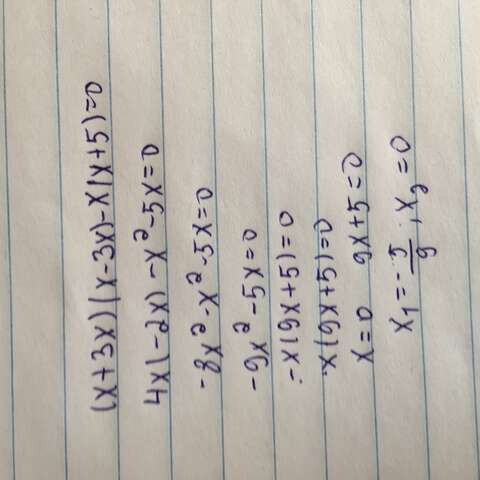 (x+3x)(x-3x)-x(x+5)=0
4x(-2x)-x²-5x=0
-8x²-x²-5x=0
-9x²-5x=0
-x(9x+5)=0
x(9x+5)=0
x=0 9x+5=0
x₁=-5/9, x₂=0